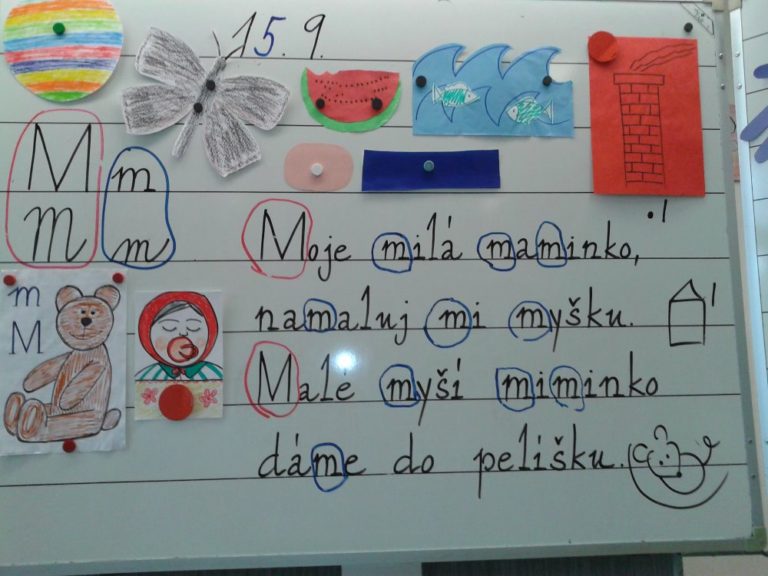 15. 9.
M m
m m
Moje milá maminko,
namaluj mi myšku.
Malé myší miminko
dáme do pelíšku.
m
M